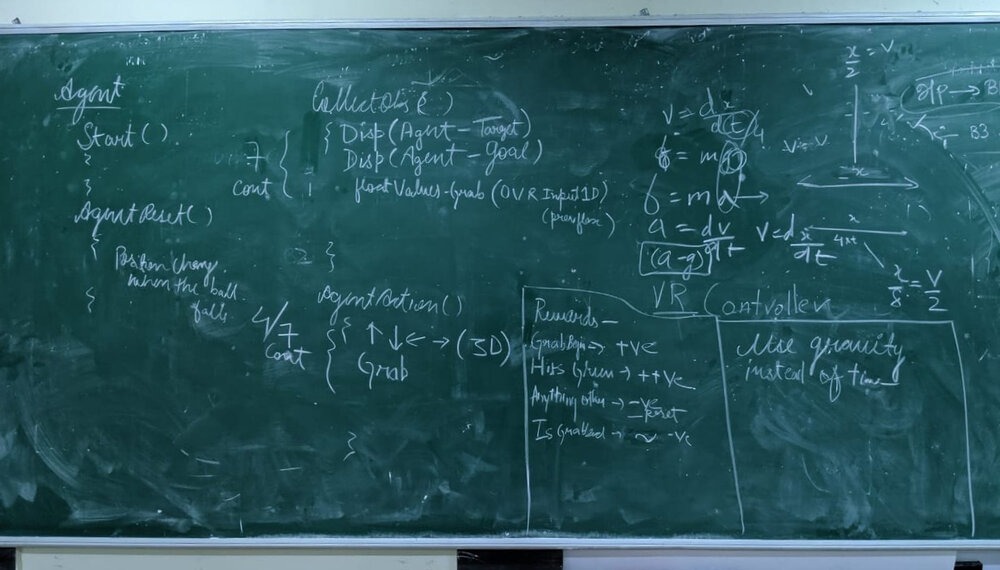 Agent
Start ( )
{
}
AgentReset ( )
{
Position Change
when the ball
falls
}
CollectObs ( )
{ Disp (Agent - Target)
Disp (Agent - goal)
float Values - Grab (OVR Input 1D)
}
7
Cont
AgentAction ( )
{ ↑ ↓ ← → (3D)
Grab
}
4/7
Cont
v = dx/dt
f = m
f = ma →
a = dv/dt v = dx/dt
(a-g)
x/2 = v
x
x
4xt
x/8 = v/2
→ B
B3
VR Controller
Rewards -
GrabBgin → +ve
Hits Green → ++ve
Anything other → -ve
Reset
Is Grabbed → ~ -ve
Use gravity
instead of time